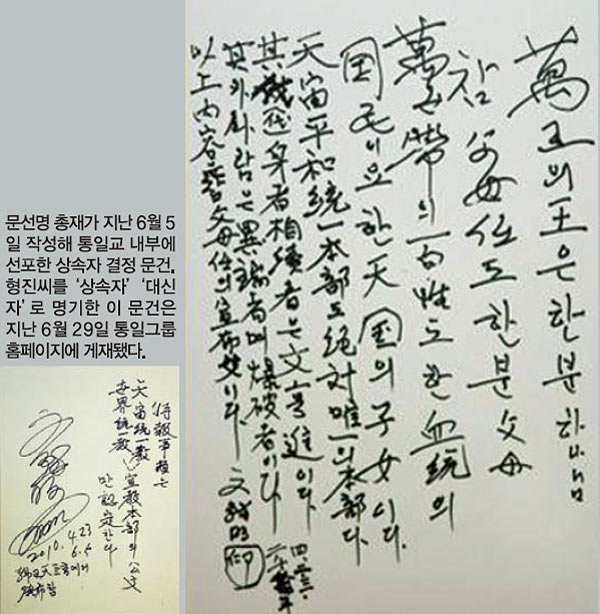 문선명 총재가 지난 6월 5
일 작성해 통일교 내부에
선포한 상속자 결정 문건.
형진씨를 '상속자' '대신
자'로 명기한 이 문건은
지난 6월 29일 통일그룹
홈페이지에 게재됐다.
特報事項은
天宙統一敎
世界統一敎 宣敎本部의 公文
만 認定한다
2010. 4.23
6.5
萬王의王은한분하나님
참父母任도한분父母
萬世帶의百姓도한血統의
國民이요한天國의子女이다.
天宙平和統一本部도絶對唯一의本部다
其代身者相續者는文亨進이다.
其外사람은異端者며爆破者이다
以上内容은참父母任의宣布文이다 文鮮明 印
四.二三.
二千拾年